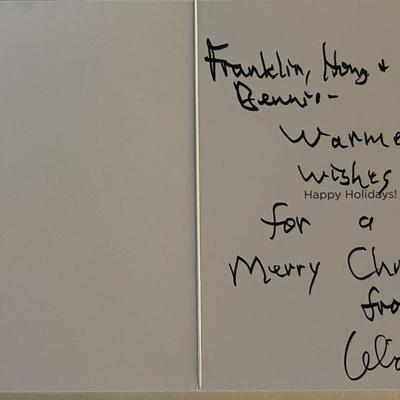 Franklin, Hong +
Bennie -
Warme
wishes
Happy Holidays!
for a
Merry Chr
fro